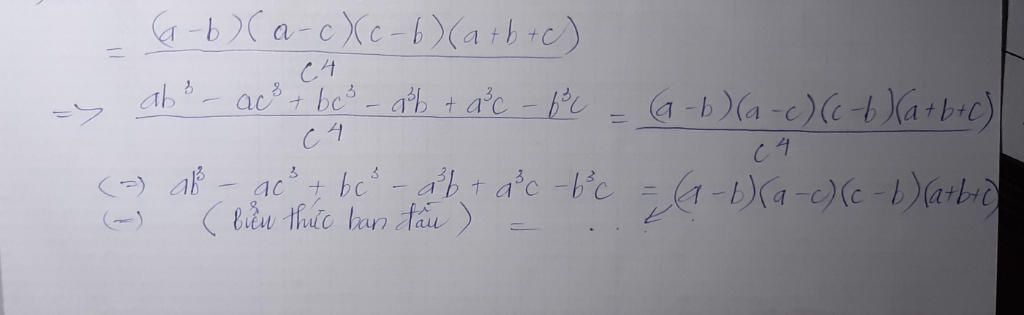 = (a-b)(a-c)(c-b)(a+b+c) / c⁴
=> ab³ - ac³ + bc³ - a³b + a³c - b³c / c⁴ = (a-b)(a-c)(c-b)(a+b+c) / c⁴
(=) ab³ - ac³ + bc³ - a³b + a³c - b³c = (a-b)(a-c)(c-b)(a+b+c)
(=) (Biểu thức ban đầu) = ...